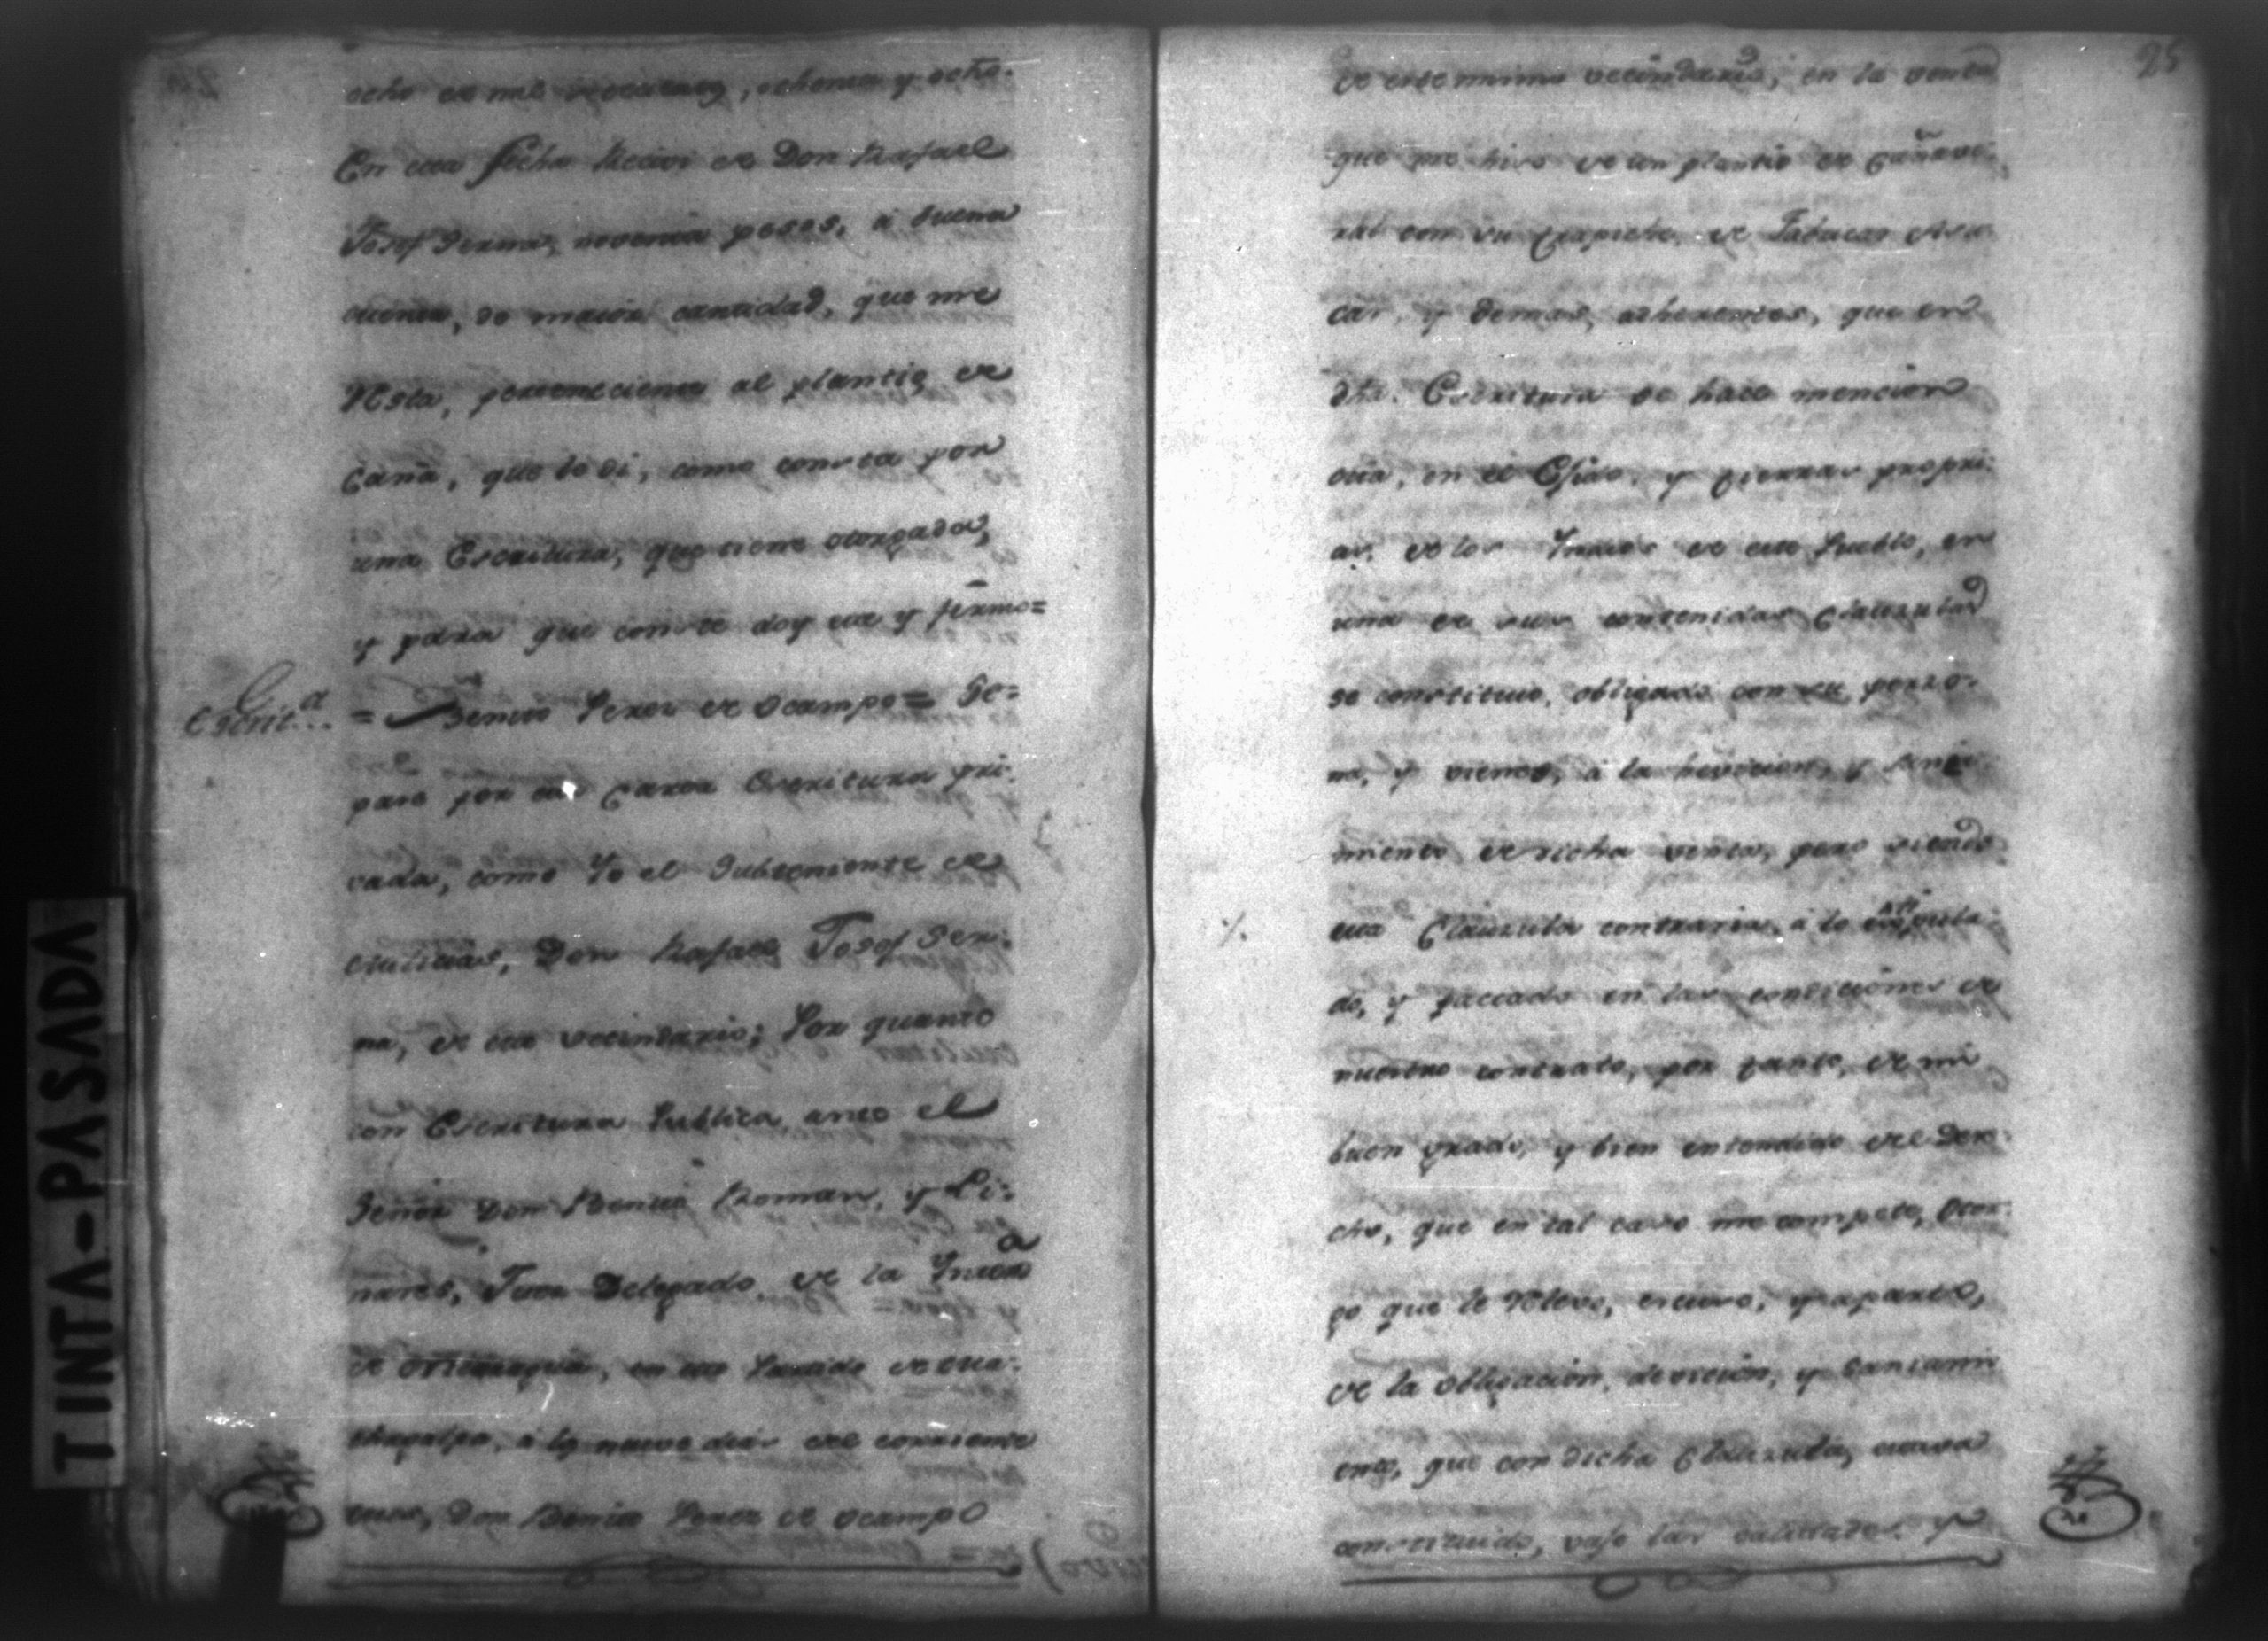 ocho de mil setecientos, ochenta y ocho.
En esta fecha Recivi de Don Rafael
Josef Serna, noventa pesos, á buena
cuenta, de maior cantidad, que me
Resta, perteneciente al plantio de
Caña, que le di, como consta por
una Escritura, que tiene otorgada,
y para que conste doy esta y firmo=
Escrit.ª
= Benito Perez de Ocampo = Se=
pase por esta Carta Escritura pri-
vada, como Yo el Subteniente de
Milicias, Don Rafael Josef Ser-
na, de este vecindario; Por quanto
con Escritura Publica, ante el
Señor Don Benito Roman, y Li-
nares, Juez Delegado, de la Inten.ª
de Nicaragua, en este Partido de
á los nueve dias del corriente
mes, Don Benito Perez de Ocampo
25
de este mismo vecindario, en la venta
que me hiso de un plantio de Cañave-
ral con su trapiche, de Fabricar Asu-
car, y demas, adherentes, que en
dha. Escritura se hace mencion
cita, en el Exido, y tierras propri-
as, de los Indios de este Pueblo, en
una de sus contenidas Clauzulas
se constituio, obligado con su perzo-
na, y vienes, á la hevicion, y Sanea-
miento de dicha venta, pero siendo
esta Clauzula contraria, á lo estipula-
do, y pactado en las condiciones de
nuestro contrato, por tanto, de mi
buen grado, y bien entendido del Dere-
cho, que en tal caso me compete, Otor-
go que le Relevo, escuso, y aparto,
de la obligacion, de vicion, y Saneami-
ento, que con dicha Clauzula, estava
constituido, vajo las calidades, y
TINTA-PASADA